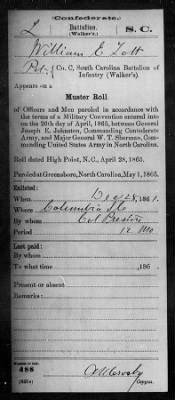 Confederate.
L Battalion S. C.
(Walker's.)
William E. Lott
Pvt., Co. C, South Carolina Battalion of
Infantry (Walker's).
Appears on a
Muster Roll
of Officers and Men paroled in accordance with
the terms of a Military Convention entered into
on the 26th day of April, 1865, between General
Joseph E. Johnston, Commanding Confederate
Army, and Major General W. T. Sherman, Com-
manding United States Army in North Carolina.
Roll dated High Point, N. C., April 28, 1865.
Paroled at Greensboro, North Carolina, May 1, 1865.
Enlisted:
When Dec 28, 1861.
Where Columbia S.C.
By whom Col Preston
Period 12 Mo
Last paid:
By whom
To what time , 186 .
Present or absent
Remarks:
Number of roll:
488
Copyist.